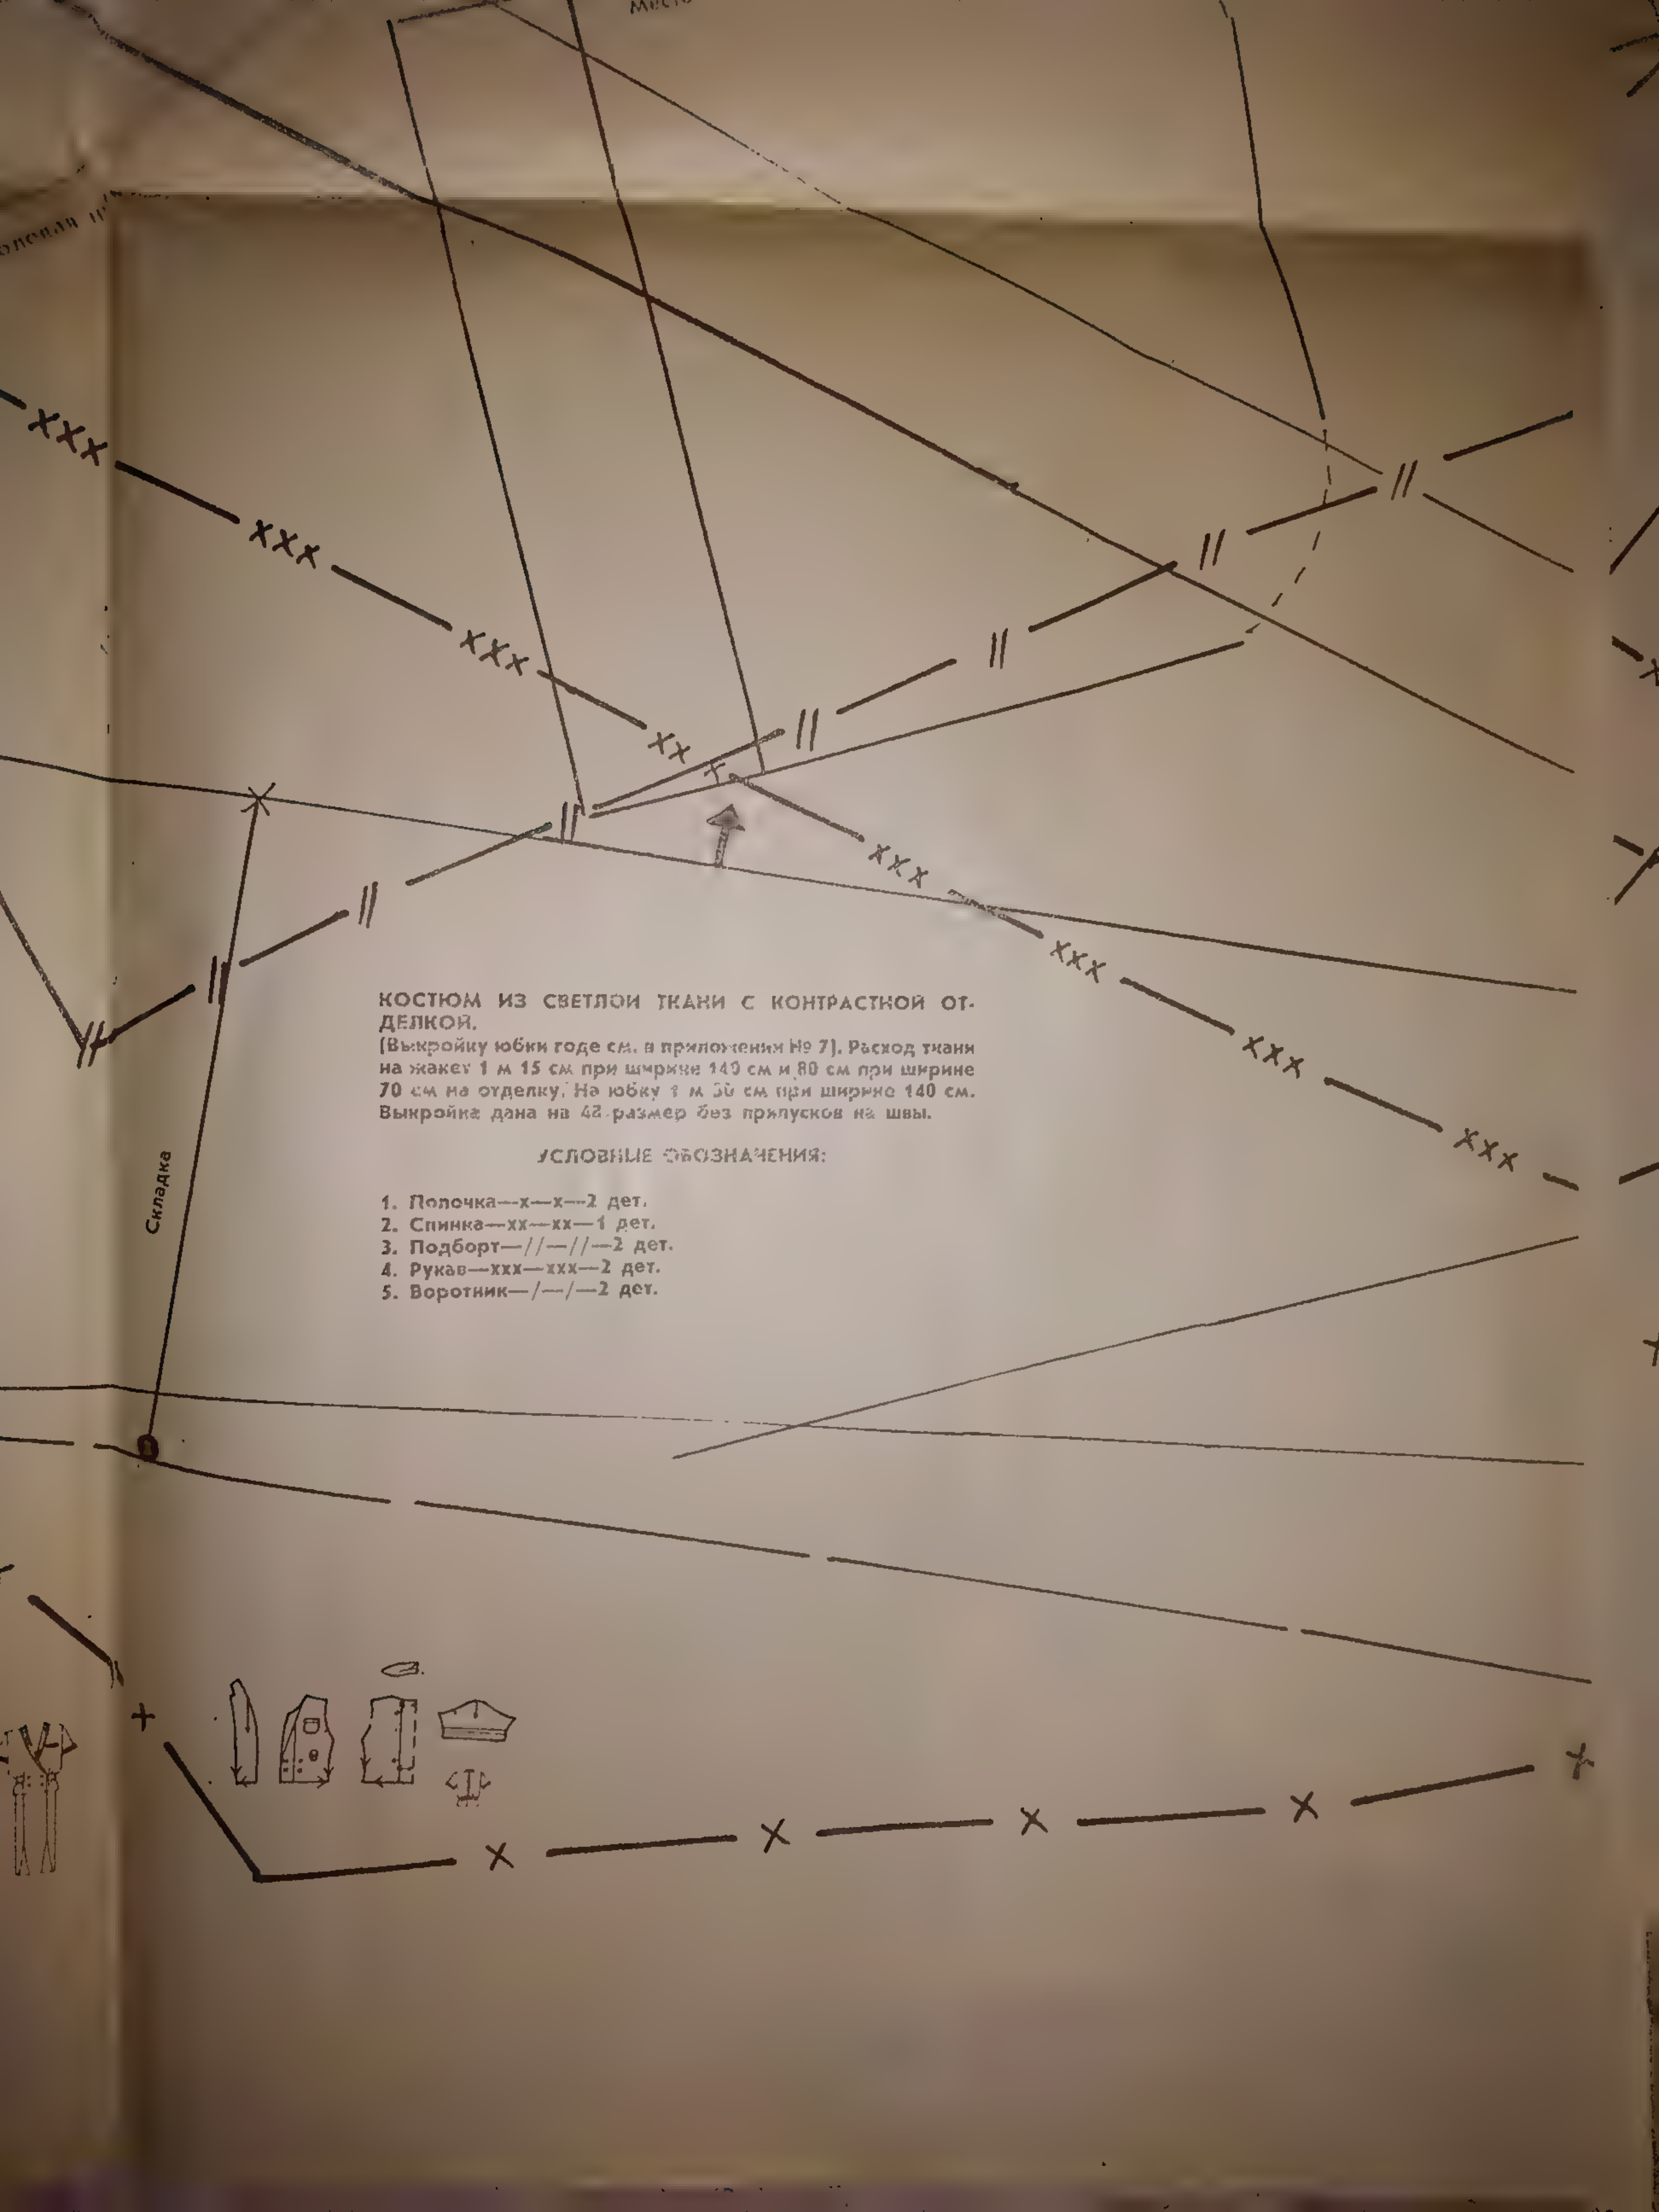 Место
КОСТЮМ ИЗ СВЕТЛОЙ ТКАНИ С КОНТРАСТНОЙ ОТ-
ДЕЛКОЙ.
(Выкройку юбки годе см. в приложении № 7). Расход ткани
на жакет 1 м 15 см при ширине 140 см и 80 см при ширине
70 см на отделку. На юбку 1 м см при ширине 140 см.
Выкройка дана на 48 размер без припусков на швы.
УСЛОВНЫЕ ОБОЗНАЧЕНИЯ:
1. Полочка—х—х—2 дет.
2. Спинка—хх—хх—1 дет.
3. Подборт—//—//—2 дет.
4. Рукав—ххх—ххх—2 дет.
5. Воротник—/—/—2 дет.
Складка